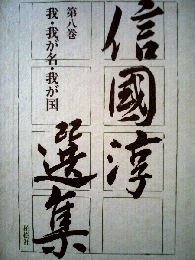 信國淳
選集
第八巻
我・我が名・我が国
柏樹社